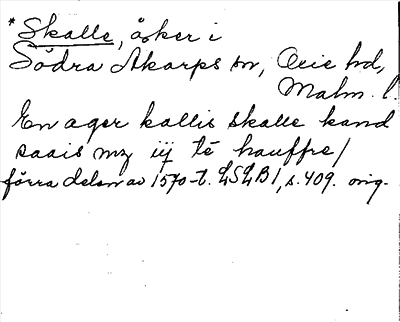 * Skalle, åker i
Södra Åkarps sn, Oxie hd,
Malm. l.
En ager kallis skalle kand
saais mz iij té hauffre/
förra delen av 1570-t. LSLB1, s. 409. orig.